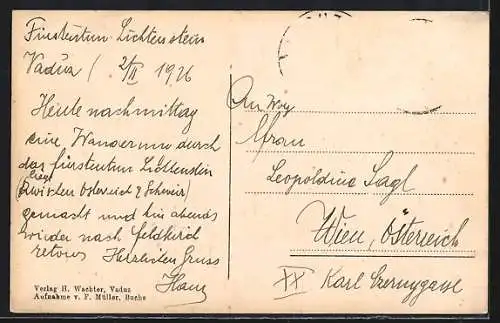 Fürstentum Lichtenstein
Vaduz / 2/II 1926
Heute nachmittag
eine Wanderung durch
das fürstentum Lichtenstein
(liegt
zwischen Österreich & Schweiz)
gemacht und bin abends
wieder nach Feldkird
retour Herzlichen Gruss
Hans
Verlag H. Wachter, Vaduz
Aufnahme v. F. Müller, Buchs
An
Frau
Leopoldine Sagl
Wien, Österreich
XX Karl Czernygasse